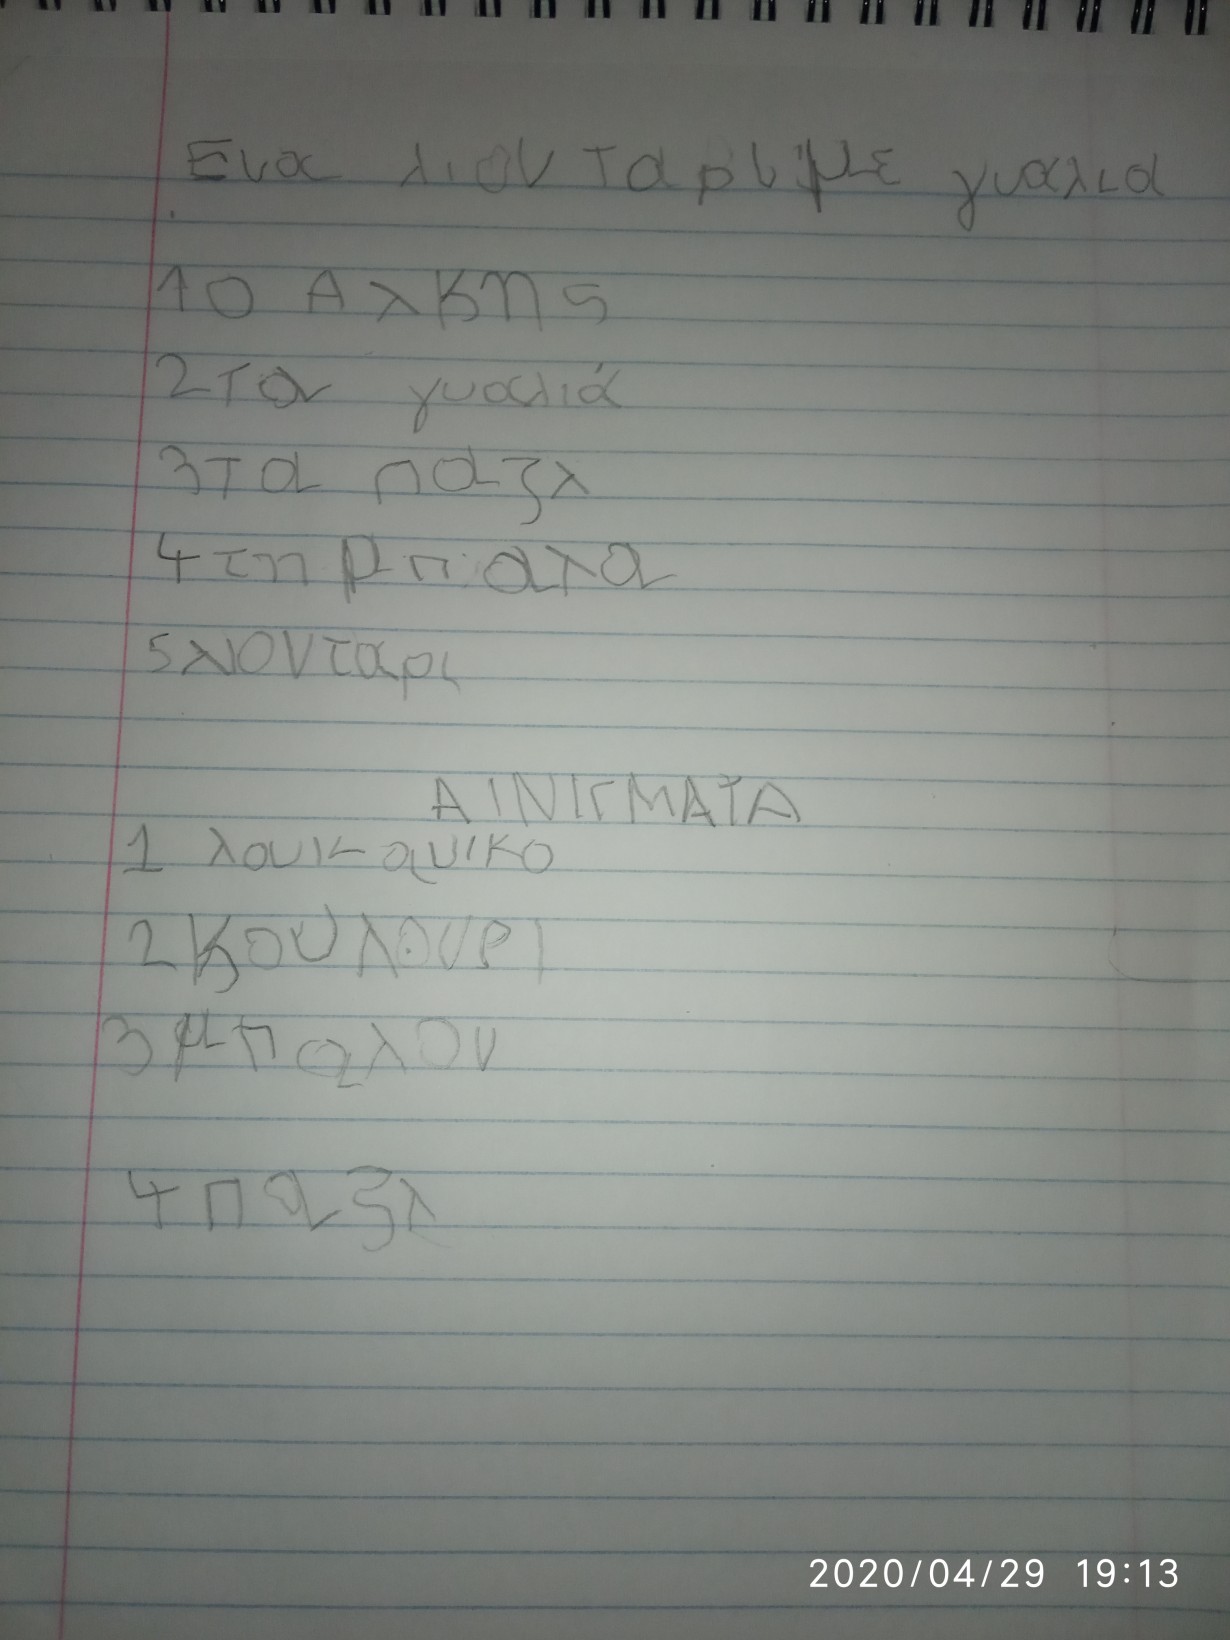 Ενα λιονταρι με γυαλια
1 Ο Αλκης
2 τα γυαλιά
3 τα παζλ
4 τη μπαλα
5 λιονταρι
ΑΙΝΙΓΜΑΤΑ
1 λουκανικο
2 κουλουρι
3 μπαλον
4 παζλ
2020/04/29 19:13